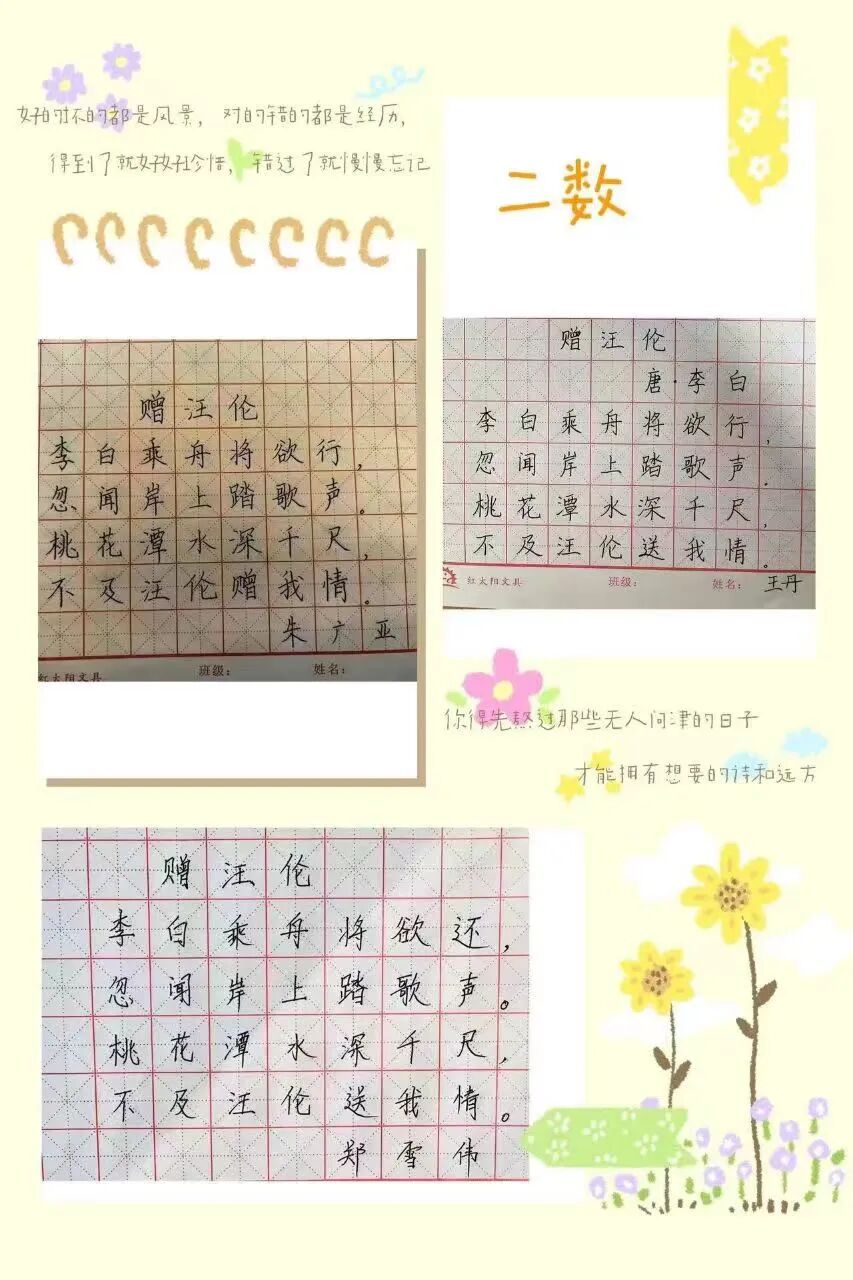 好的坏的都是风景，对的错的都是经历，
得到了就好好珍惜，错过了就慢慢忘记
二数
赠汪伦
李白乘舟将欲行，
忽闻岸上踏歌声。
桃花潭水深千尺，
不及汪伦赠我情。
朱广亚
红太阳文具 班级： 姓名：
赠汪伦
唐·李白
李白乘舟将欲行，
忽闻岸上踏歌声。
桃花潭水深千尺，
不及汪伦送我情。
红太阳文具 班级： 姓名： 王丹
你得先熬过那些无人问津的日子
才能拥有想要的诗和远方
赠汪伦
李白乘舟将欲还，
忽闻岸上踏歌声。
桃花潭水深千尺，
不及汪伦送我情。
郑雪伟